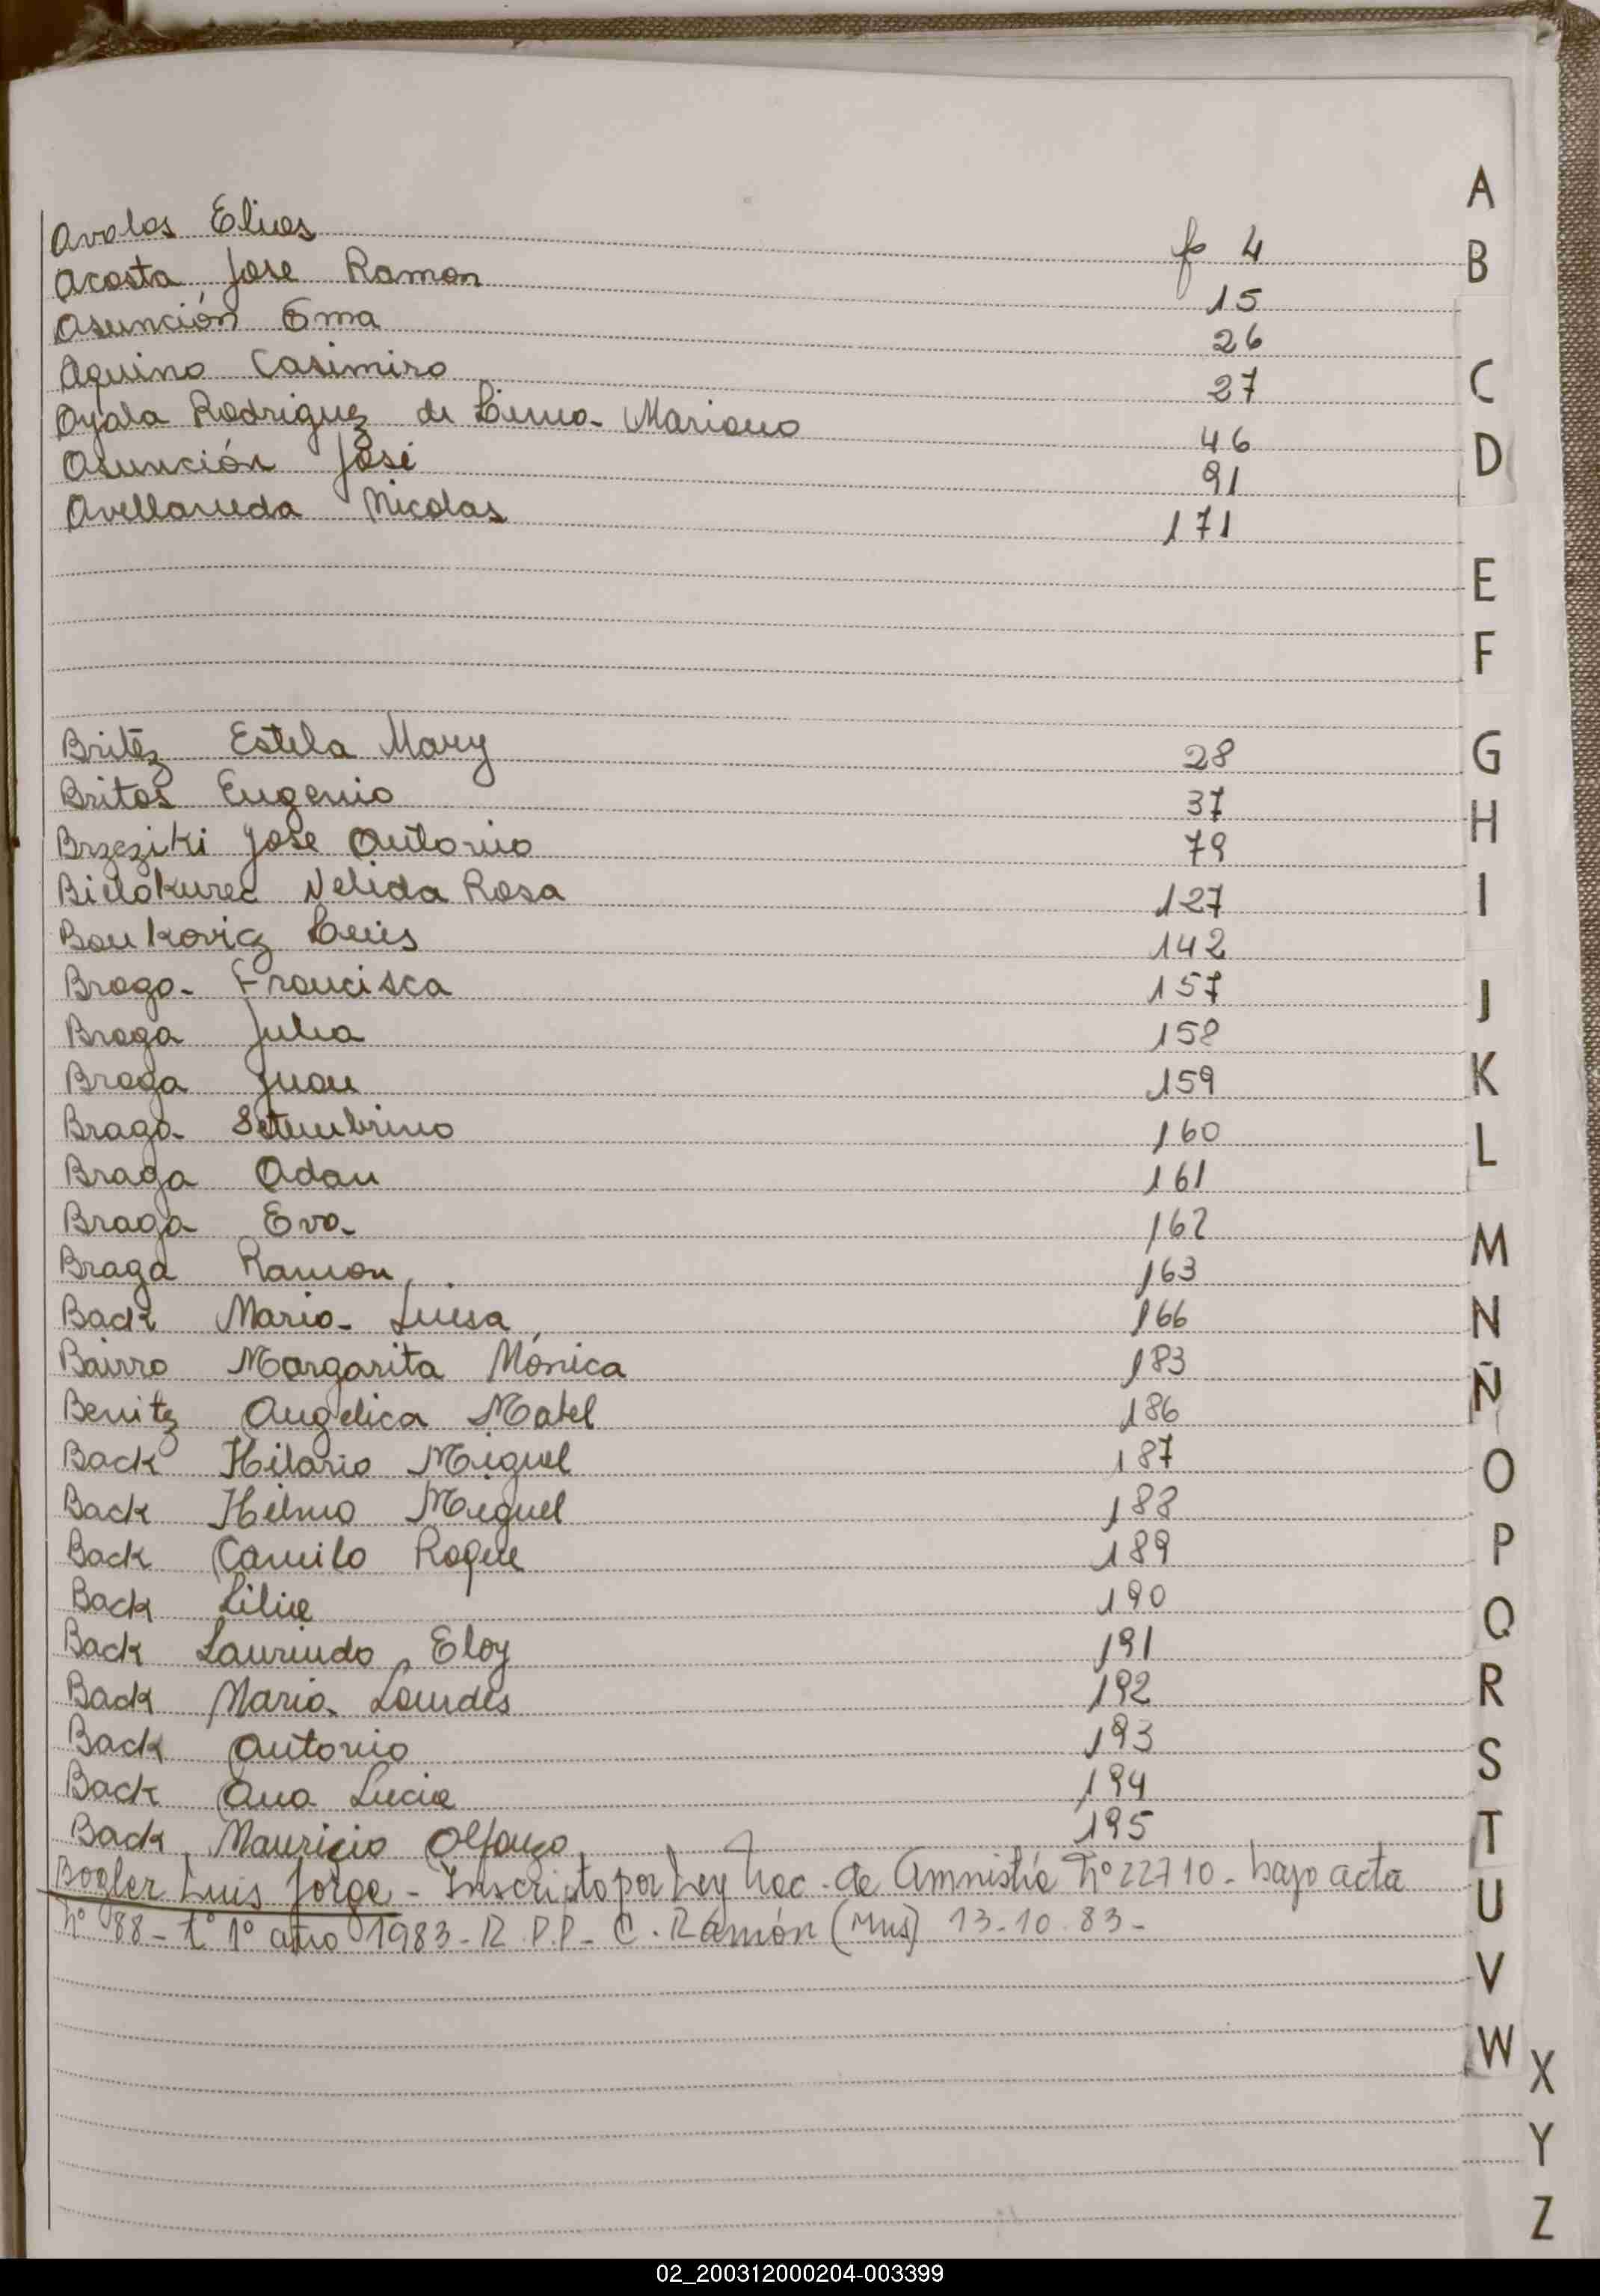 Avalos Elias f° 4
Acosta Jose Ramon 15
Asunción Ema 26
Aquino Casimiro 27
Ayala Rodriguez de Lima Mariana 46
Asunción José 91
Avellaneda Nicolas 171
Britez Estela Mary 28
Britos Eugenio 37
Brzeziki Jose Antonio 79
Bielakurec Nelida Rosa 127
Bankovicz Luis 142
Braga Francisca 157
Braga Julia 158
Braga Juan 159
Braga Setembrino 160
Braga Adan 161
Braga Eva 162
Braga Ramon 163
Back Maria Luisa 166
Bairro Margarita Mónica 183
Benitz Angelica Mabel 186
Back Hilario Miguel 187
Back Helmo Miguel 188
Back Camilo Roque 189
Back Lilia 190
Back Laurindo Eloy 191
Back Maria Lourdes 192
Back Antonio 193
Back Ana Lucia 194
Back Mauricio Alfonzo 195
Bogler Luis Jorge - Inscripto por Ley Nac. de Amnistía N° 22710 - bajo acta
N° 88 - t° 1° año 1983 - R.P.P. - C. Ramón (Mns) 13-10-83 -
A
B
C
D
E
F
G
H
I
J
K
L
M
N
Ñ
O
P
Q
R
S
T
U
V
W
X
Y
Z
02_200312000204-003399